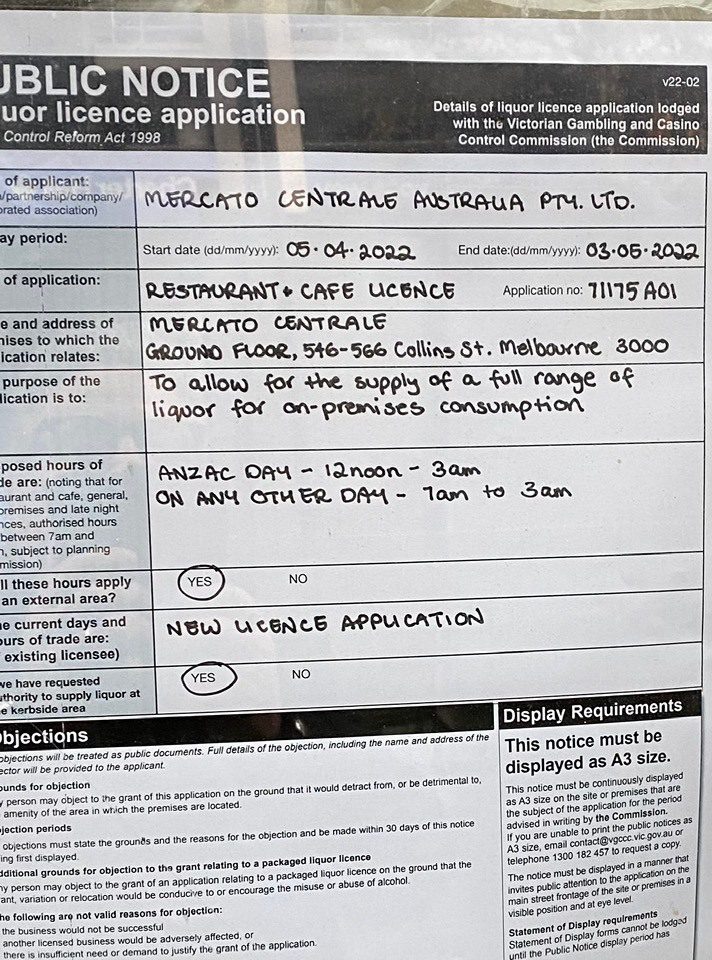 UBLIC NOTICE
v22-02
uor licence application
Control Reform Act 1998
Details of liquor licence application lodged
with the Victorian Gambling and Casino
Control Commission (the Commission)
of applicant:
/partnership/company/
orated association)
MERCATO CENTRALE AUSTRALIA PTY. LTD.
ay period:
Start date (dd/mm/yyyy): 05.04.2022 End date:(dd/mm/yyyy): 03.05.2022
of application:
RESTAURANT + CAFE LICENCE Application no: 71175A01
e and address of
nises to which the
lication relates:
MERCATO CENTRALE
GROUND FLOOR, 546-566 Collins St. Melbourne 3000
purpose of the
lication is to:
To allow for the supply of a full range of
liquor for on-premises consumption
posed hours of
de are: (noting that for
aurant and cafe, general,
premises and late night
nces, authorised hours
between 7am and
, subject to planning
mission)
ANZAC DAY - 12noon - 3am
ON ANY OTHER DAY - 7am to 3am
ll these hours apply
an external area?
YES NO
e current days and
ours of trade are:
existing licensee)
NEW LICENCE APPLICATION
we have requested
uthority to supply liquor at
e kerbside area
YES NO
bjections
objections will be treated as public documents. Full details of the objection, including the name and address of the
ector will be provided to the applicant.
ounds for objection
y person may object to the grant of this application on the ground that it would detract from, or be detrimental to,
amenity of the area in which the premises are located.
jection periods
objections must state the grounds and the reasons for the objection and be made within 30 days of this notice
ing first displayed.
dditional grounds for objection to the grant relating to a packaged liquor licence
ny person may object to the grant of an application relating to a packaged liquor licence on the ground that the
ant, variation or relocation would be conducive to or encourage the misuse or abuse of alcohol.
he following are not valid reasons for objection:
the business would not be successful
another licensed business would be adversely affected, or
there is insufficient need or demand to justify the grant of the application.
Display Requirements
This notice must be
displayed as A3 size.
This notice must be continuously displayed
as A3 size on the site or premises that are
the subject of the application for the period
advised in writing by the Commission.
If you are unable to print the public notices as
A3 size, email contact@vgccc.vic.gov.au or
telephone 1300 182 457 to request a copy.
The notice must be displayed in a manner that
invites public attention to the application on the
main street frontage of the site or premises in a
visible position and at eye level.
Statement of Display requirements
Statement of Display forms cannot be lodged
until the Public Notice display period has